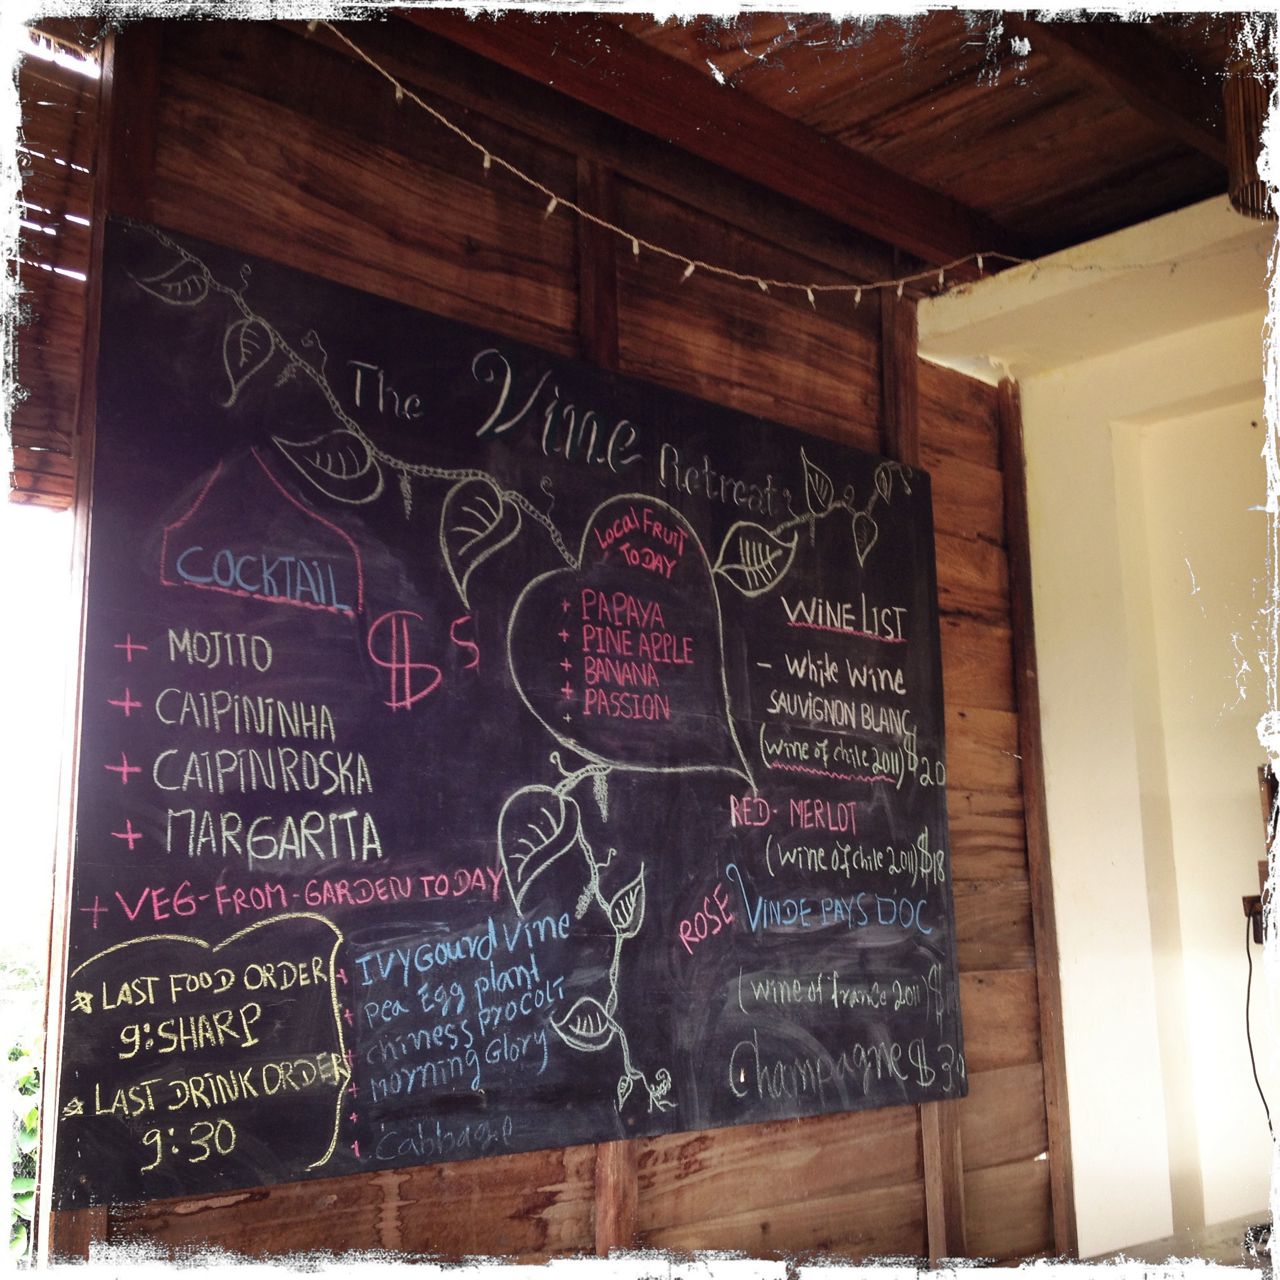 The Vine Retreat
COCKTAIL
$ 5
+ MOJITO
+ CAIPININHA
+ CAIPINROSKA
+ MARGARITA
+ VEG-FROM-GARDEN TODAY
LAST FOOD ORDER
9:SHARP
LAST DRINK ORDER
9:30
+ IVYGourd Vine
+ pea Egg plant
+ chiness procoli
+ morning Glory
+ Cabbage
Local FRUIT
TODAY
+ PAPAYA
+ PINE APPLE
+ BANANA
+ PASSION
+
WINE LIST
- White wine
SAUVIGNON BLANC
(wine of chile 2011) $20
RED- MERLOT
(wine of chile 2011) $18
ROSE VINDE PAYS DOC
(wine of france 2011) $
Champagne $